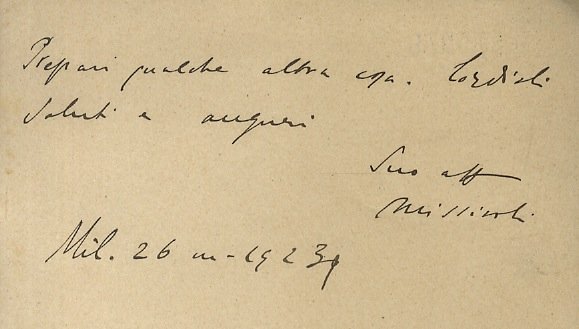 Prepari qualche altra cosa. Cordiali
saluti e auguri
Suo aff
Missiroli
Mil. 26 III - 1923